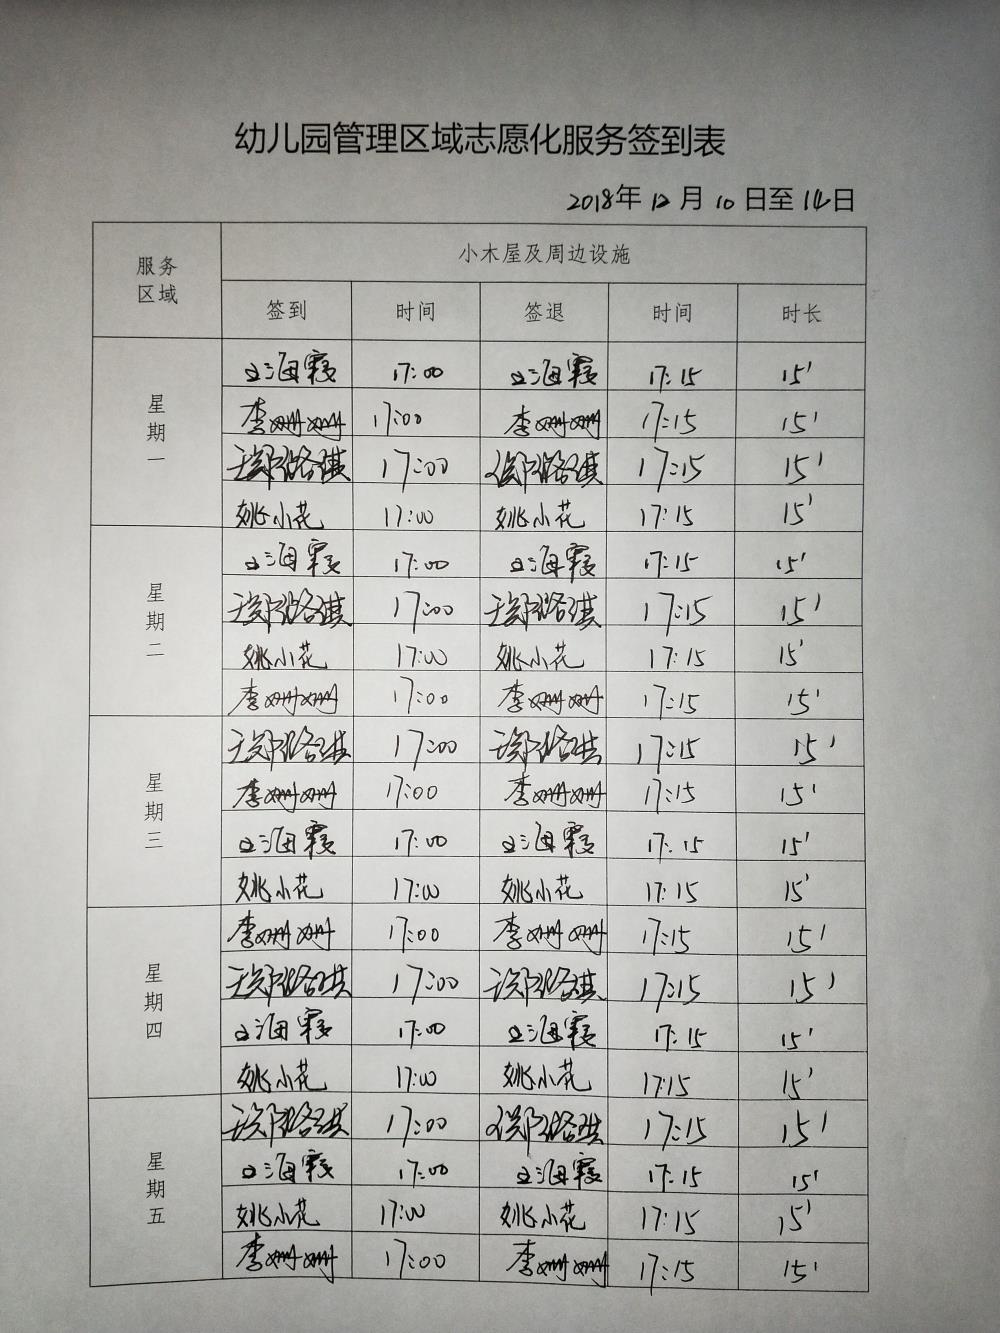 幼儿园管理区域志愿化服务签到表
2018年 12 月 10 日至 14日
服务区域 小木屋及周边设施
签到 时间 签退 时间 时长
星期一
海霞 17:00 海霞 17:15 15'
李姗姗 17:00 李姗姗 17:15 15'
17:00 17:15 15'
姚小花 17:00 姚小花 17:15 15'
星期二
海霞 17:00 海霞 17:15 15'
17:00 17:15 15'
姚小花 17:00 姚小花 17:15 15'
李姗姗 17:00 李姗姗 17:15 15'
星期三
17:00 17:15 15'
李姗姗 17:00 李姗姗 17:15 15'
海霞 17:00 海霞 17:15 15'
姚小花 17:00 姚小花 17:15 15'
星期四
李姗姗 17:00 李姗姗 17:15 15'
17:00 17:15 15'
海霞 17:00 海霞 17:15 15'
姚小花 17:00 姚小花 17:15 15'
星期五
17:00 17:15 15'
海霞 17:00 海霞 17:15 15'
姚小花 17:00 姚小花 17:15 15'
李姗姗 17:00 李姗姗 17:15 15'